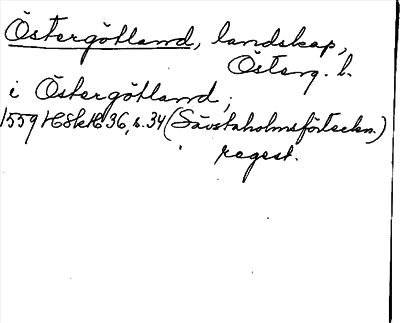 Östergötland, landskap,
Österg. l.
i Östergötland;
1559 HSkH 36, s. 34 (Sävstaholmsförteckn.)
regest.